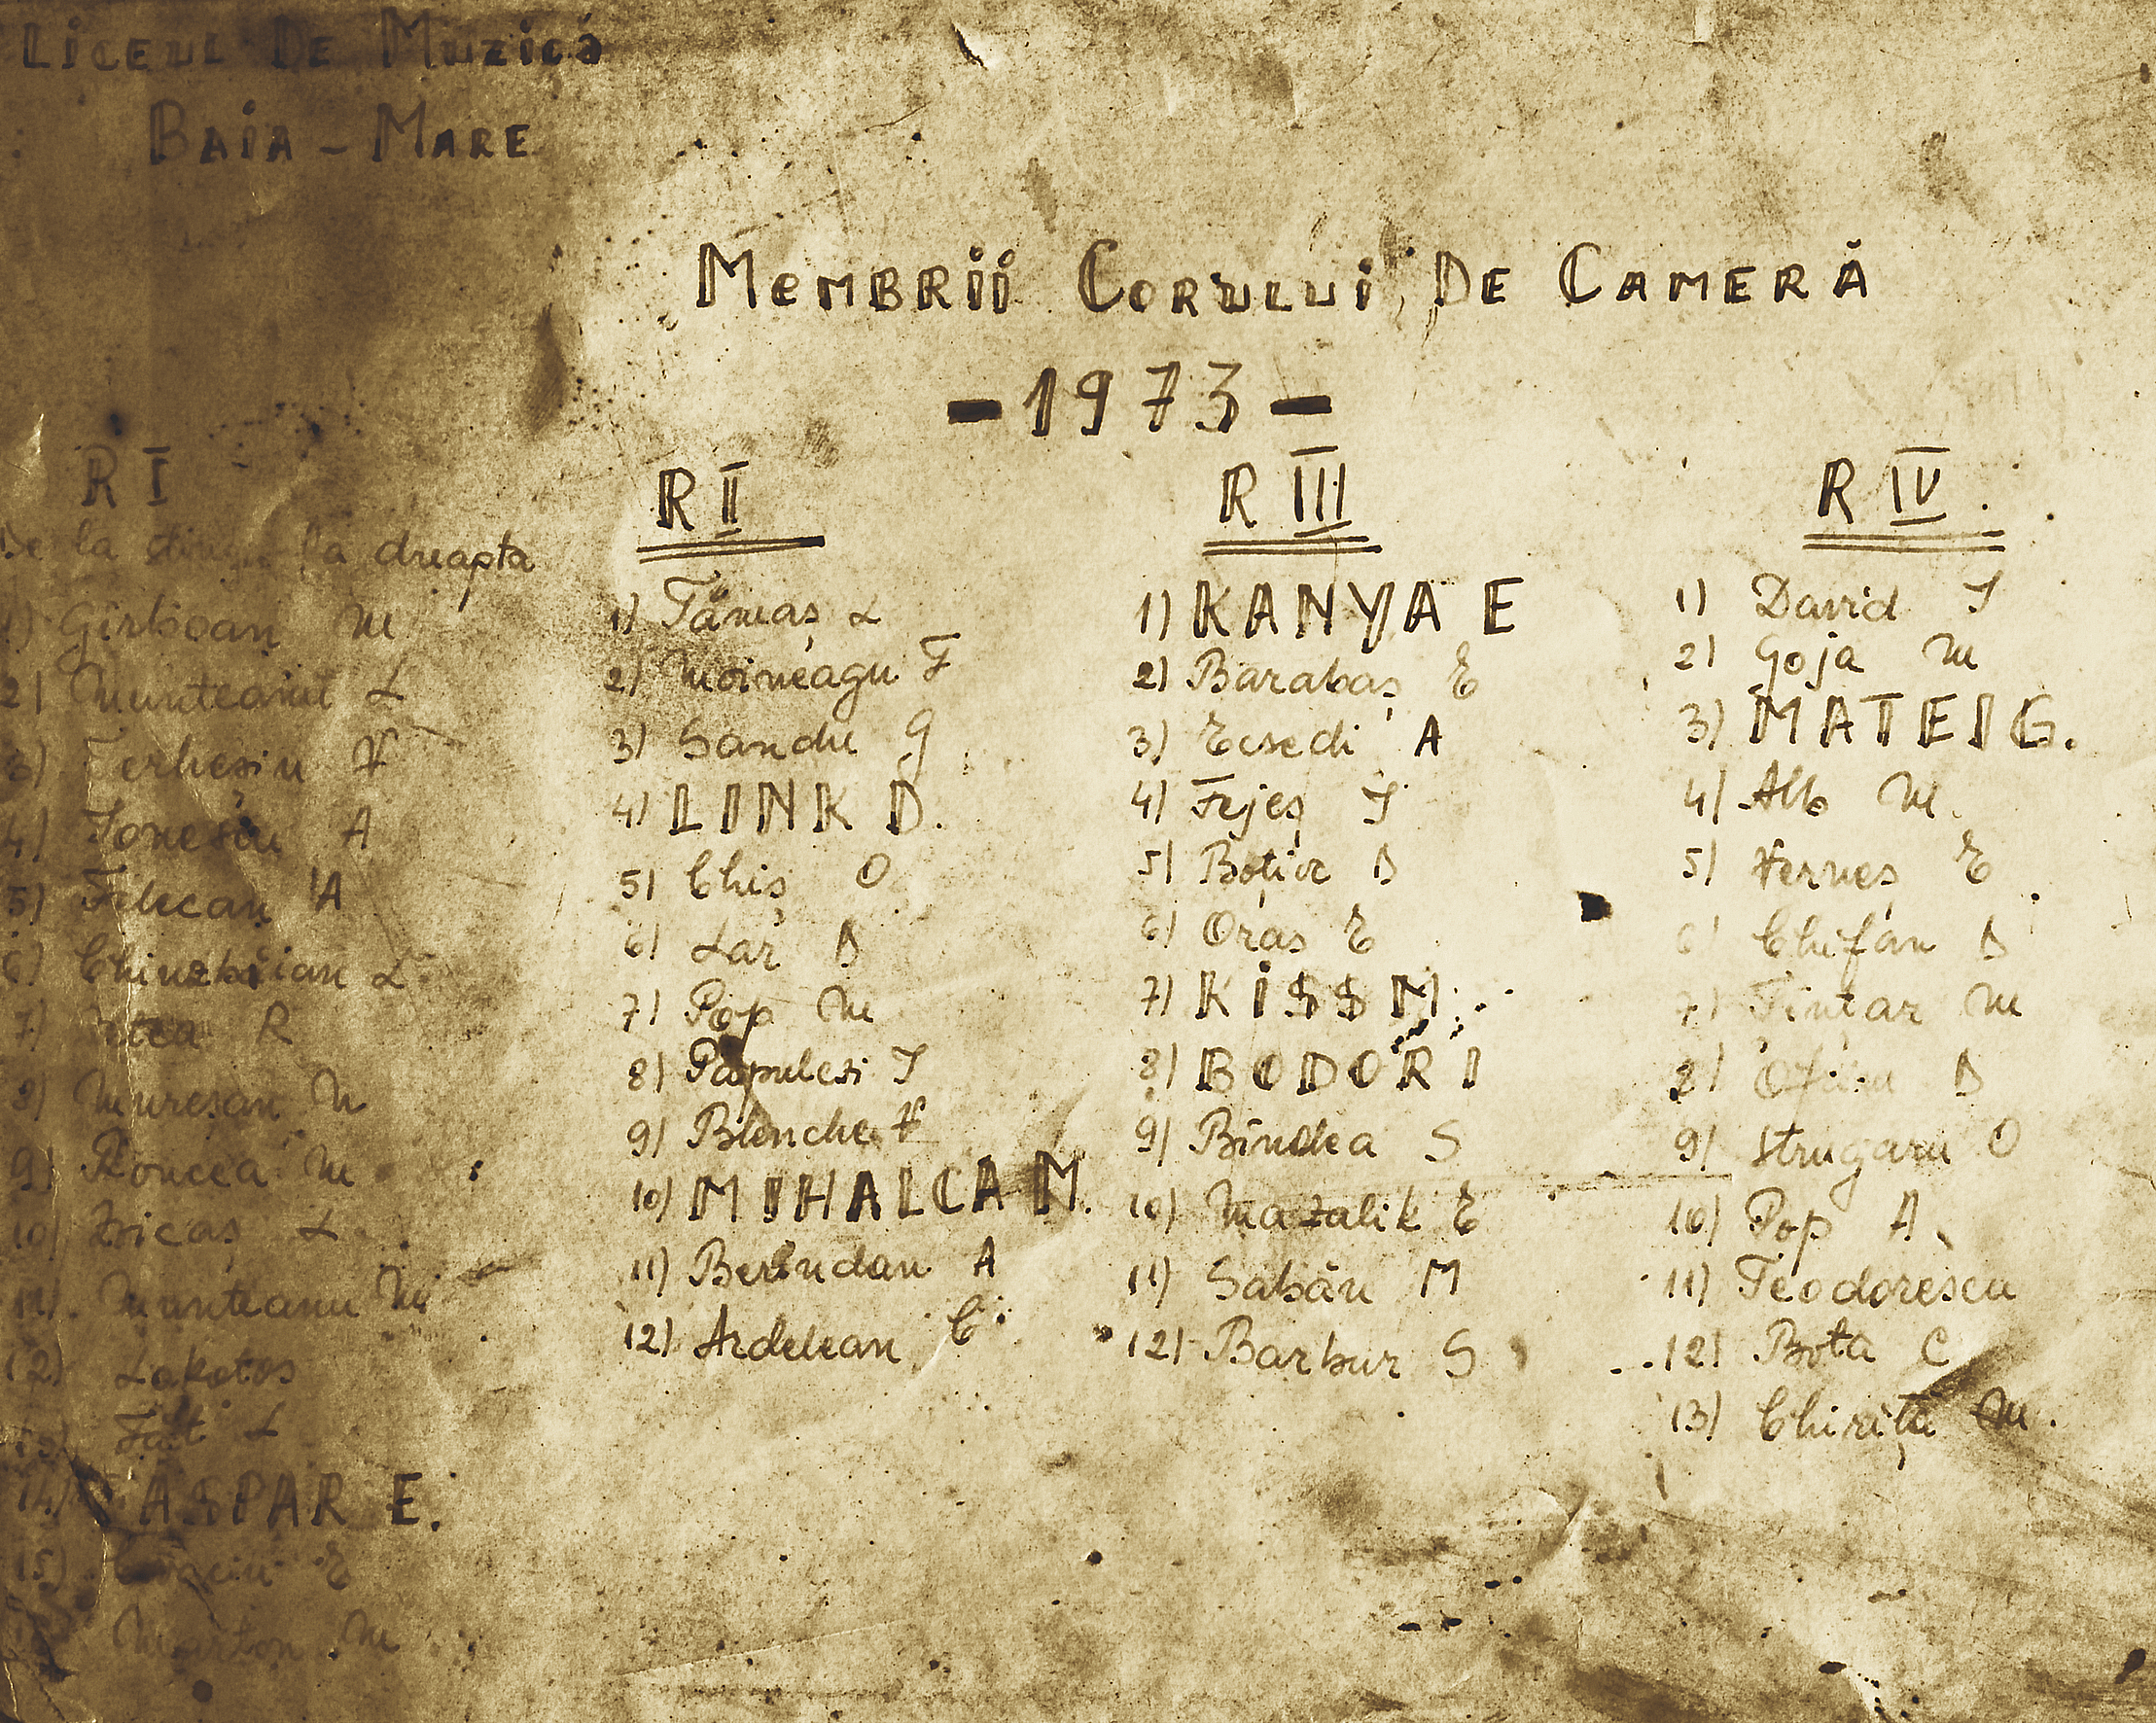 Liceul De Muzică
Baia - Mare
Membrii Corului De Cameră
- 1973 -
R I
De la stînga la dreapta
1) Girboan M
2) Munteanu L
3) Terhesiu H
4) Ionescu A
5) Felecan A
6) Chiuzbăian L
7) R
8) Mureșan M
9) Roncea M
10) L
11) Munteanu M
12) Lakotos
13) Fält L
14) GASPAR E.
15) E
Marton M
R II
1) Tămaș L
2) Moineagu F
3) Sandu G
4) LINK D.
5) Chiș O
6) Lar D
7) Pop M
8) Papulesi I
9) Blenche H
10) MIHALCA M.
11) Berindan A
12) Ardelean C
R III
1) KANYA E
2) Barabaș E
3) Ecsedi A
4) Fejeș I
5) Boțiz D
6) Oras E
7) KISS M
8) BODO R I
9) Bîndea S
10) Mazalik E
11) Sabău M
12) Barbur S
R IV.
1) David I
2) Goja M
3) MATEI G.
4) Alb M.
5) Herneș E
6) Chifân D
7) Țințar M
8) D
9) Strugaru O
10) Pop A
11) Teodorescu
12) Bota C
13) Chiriță M.